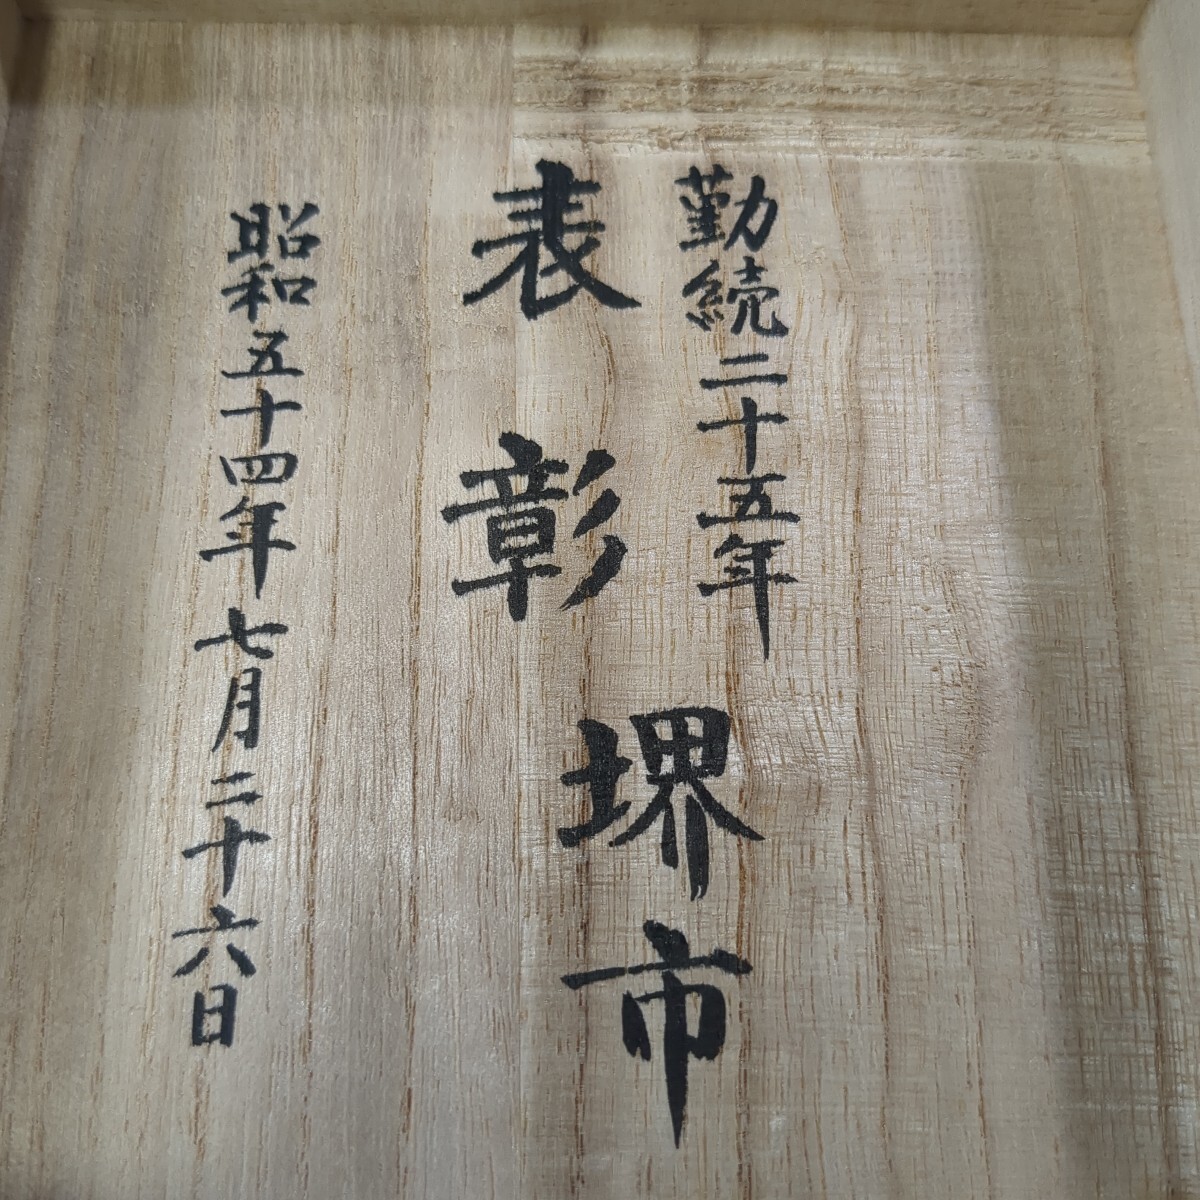 勤続二十五年
表彰
堺市
昭和五十四年七月二十六日